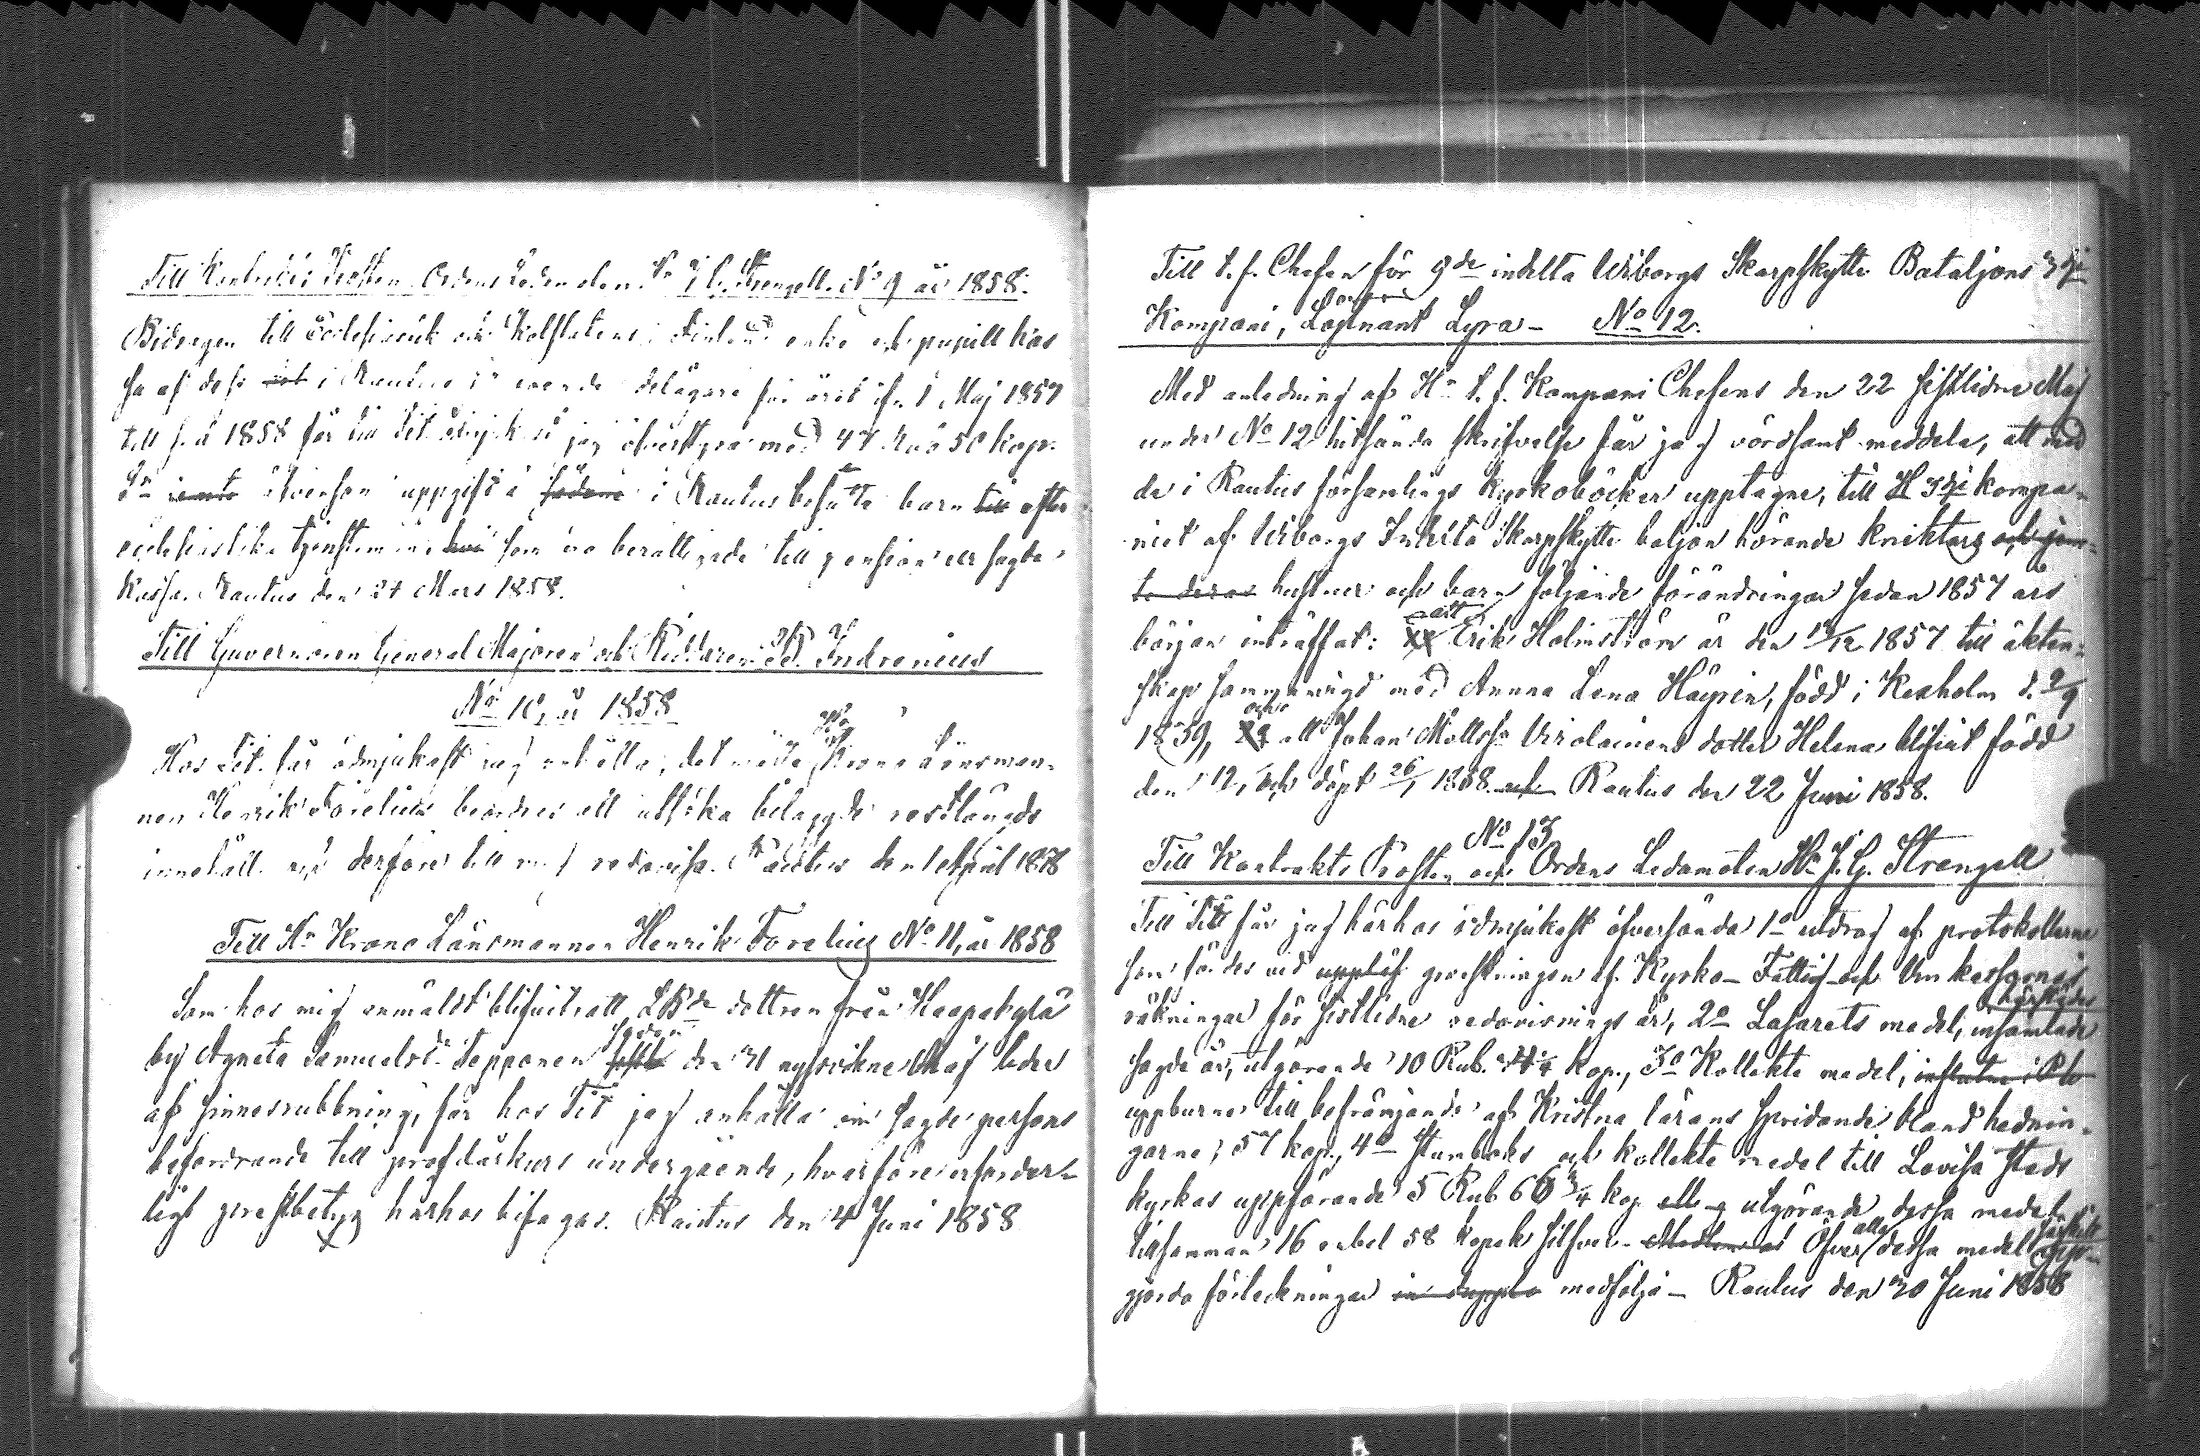 Till Kontrakts Prosten Ordens Ledamoten Hr J. G. Strengell. No 9 år 1858.
Bidragen till Ecclesiastik och Kolstatens i Finland enke och pupill kas
sa af dess i Rautus varande delägare för året ifrn 1 Maj 1857
till s. d. 1858 får Tit ödmjukast jag öfverstyra med 47 Rub 50 kop.
samt äfvensom uppgift å i Rautus bosatta barn efter
ecclesiastika tjenstemän som äro berättigade till pension ur sagde
Kassa. Rautus den 27 Mars 1858.
Till Guvernören General Majoren och Riddaren B. Indrenius
No 10, år 1858
Hos Tit. får ödmjukast jag anhålla, det måtte Krono Länsman-
nen Henrik Forelius beordras att utsöka bilagde restlängds
innehåll och derföre till mig redovisa. Rautus den 1 April 1858
Till Hr Krono Länsmannen Henrik Forelius No 11, år 1858
Som hos mig anmäldt blifvit, att dottren från Haapakylä
by Agneta Samuelsdr Tepponen sedan den 31 nyssvikne Maj lider
af sinnesrubbning, får hos Tit jag anhålla om sagde persons
befordrande till profdårkurs undergående, hvarföre erforder-
ligt prestbetyg härhos bifogas. Rautus den 4 Juni 1858
Till t. f. Chefen för 9de indelta Wiborgs Skarpskytte Bataljons 3dje
Kompani, Löjtnant Lyra - No 12.
Med anledning af Hr t. f. Kompani Chefens den 22 sistlidne Maj
under No 12 hitsända skrifvelse får jag vördsamt meddela, att med
de i Rautus församlings kyrkoböcker upptagne, till 3dje kompa-
niet af Wiborgs Indelta Skarpskytte baljon hörande knektars och jem-
te deras hustrur och barn följande förändringar sedan 1857 års
början inträffat: att Erik Holmström är den 1857 till äkten-
skap sammanvigd med Annna Lena Häyrin, född i Kexholm d. 2/9
1839, och att Johan Mattss Virolainens dotter Helena blifvit född
den 12, och döpt 26/1 1858. Rautus den 22 Juni 1858.
No 13
Till Kontrakts Prosten och Ordens Ledamoten Hr J. G. Strengell
Till Tit får jag härhos ödmjukast öfversända 1o utdrag af protokollerne
som fördes vid granskningen af Kyrko- Fattig- och kassornes
räkningar för sistlidne redovisnings år, 2o Lasarets medel, insamlade härstädes
sagde år, utgörande 10 Rub. kop., 3o Kollekte medel,
uppburne till befrämjande af Kristna lärans spridande bland hednin-
garne; 57 kop., 4o Stamboks och kollekte medel till Lovisa Stads
kyrkas uppförande 5 Rub 66 3/4 kop utgörande dessa medel
tillsamman 16 rubel 58 kopek silfver. Öfver alla dessa medel särskilt upp-
gjorda förteckningar in duplo medfölja - Rautus den 30 Juni 1858